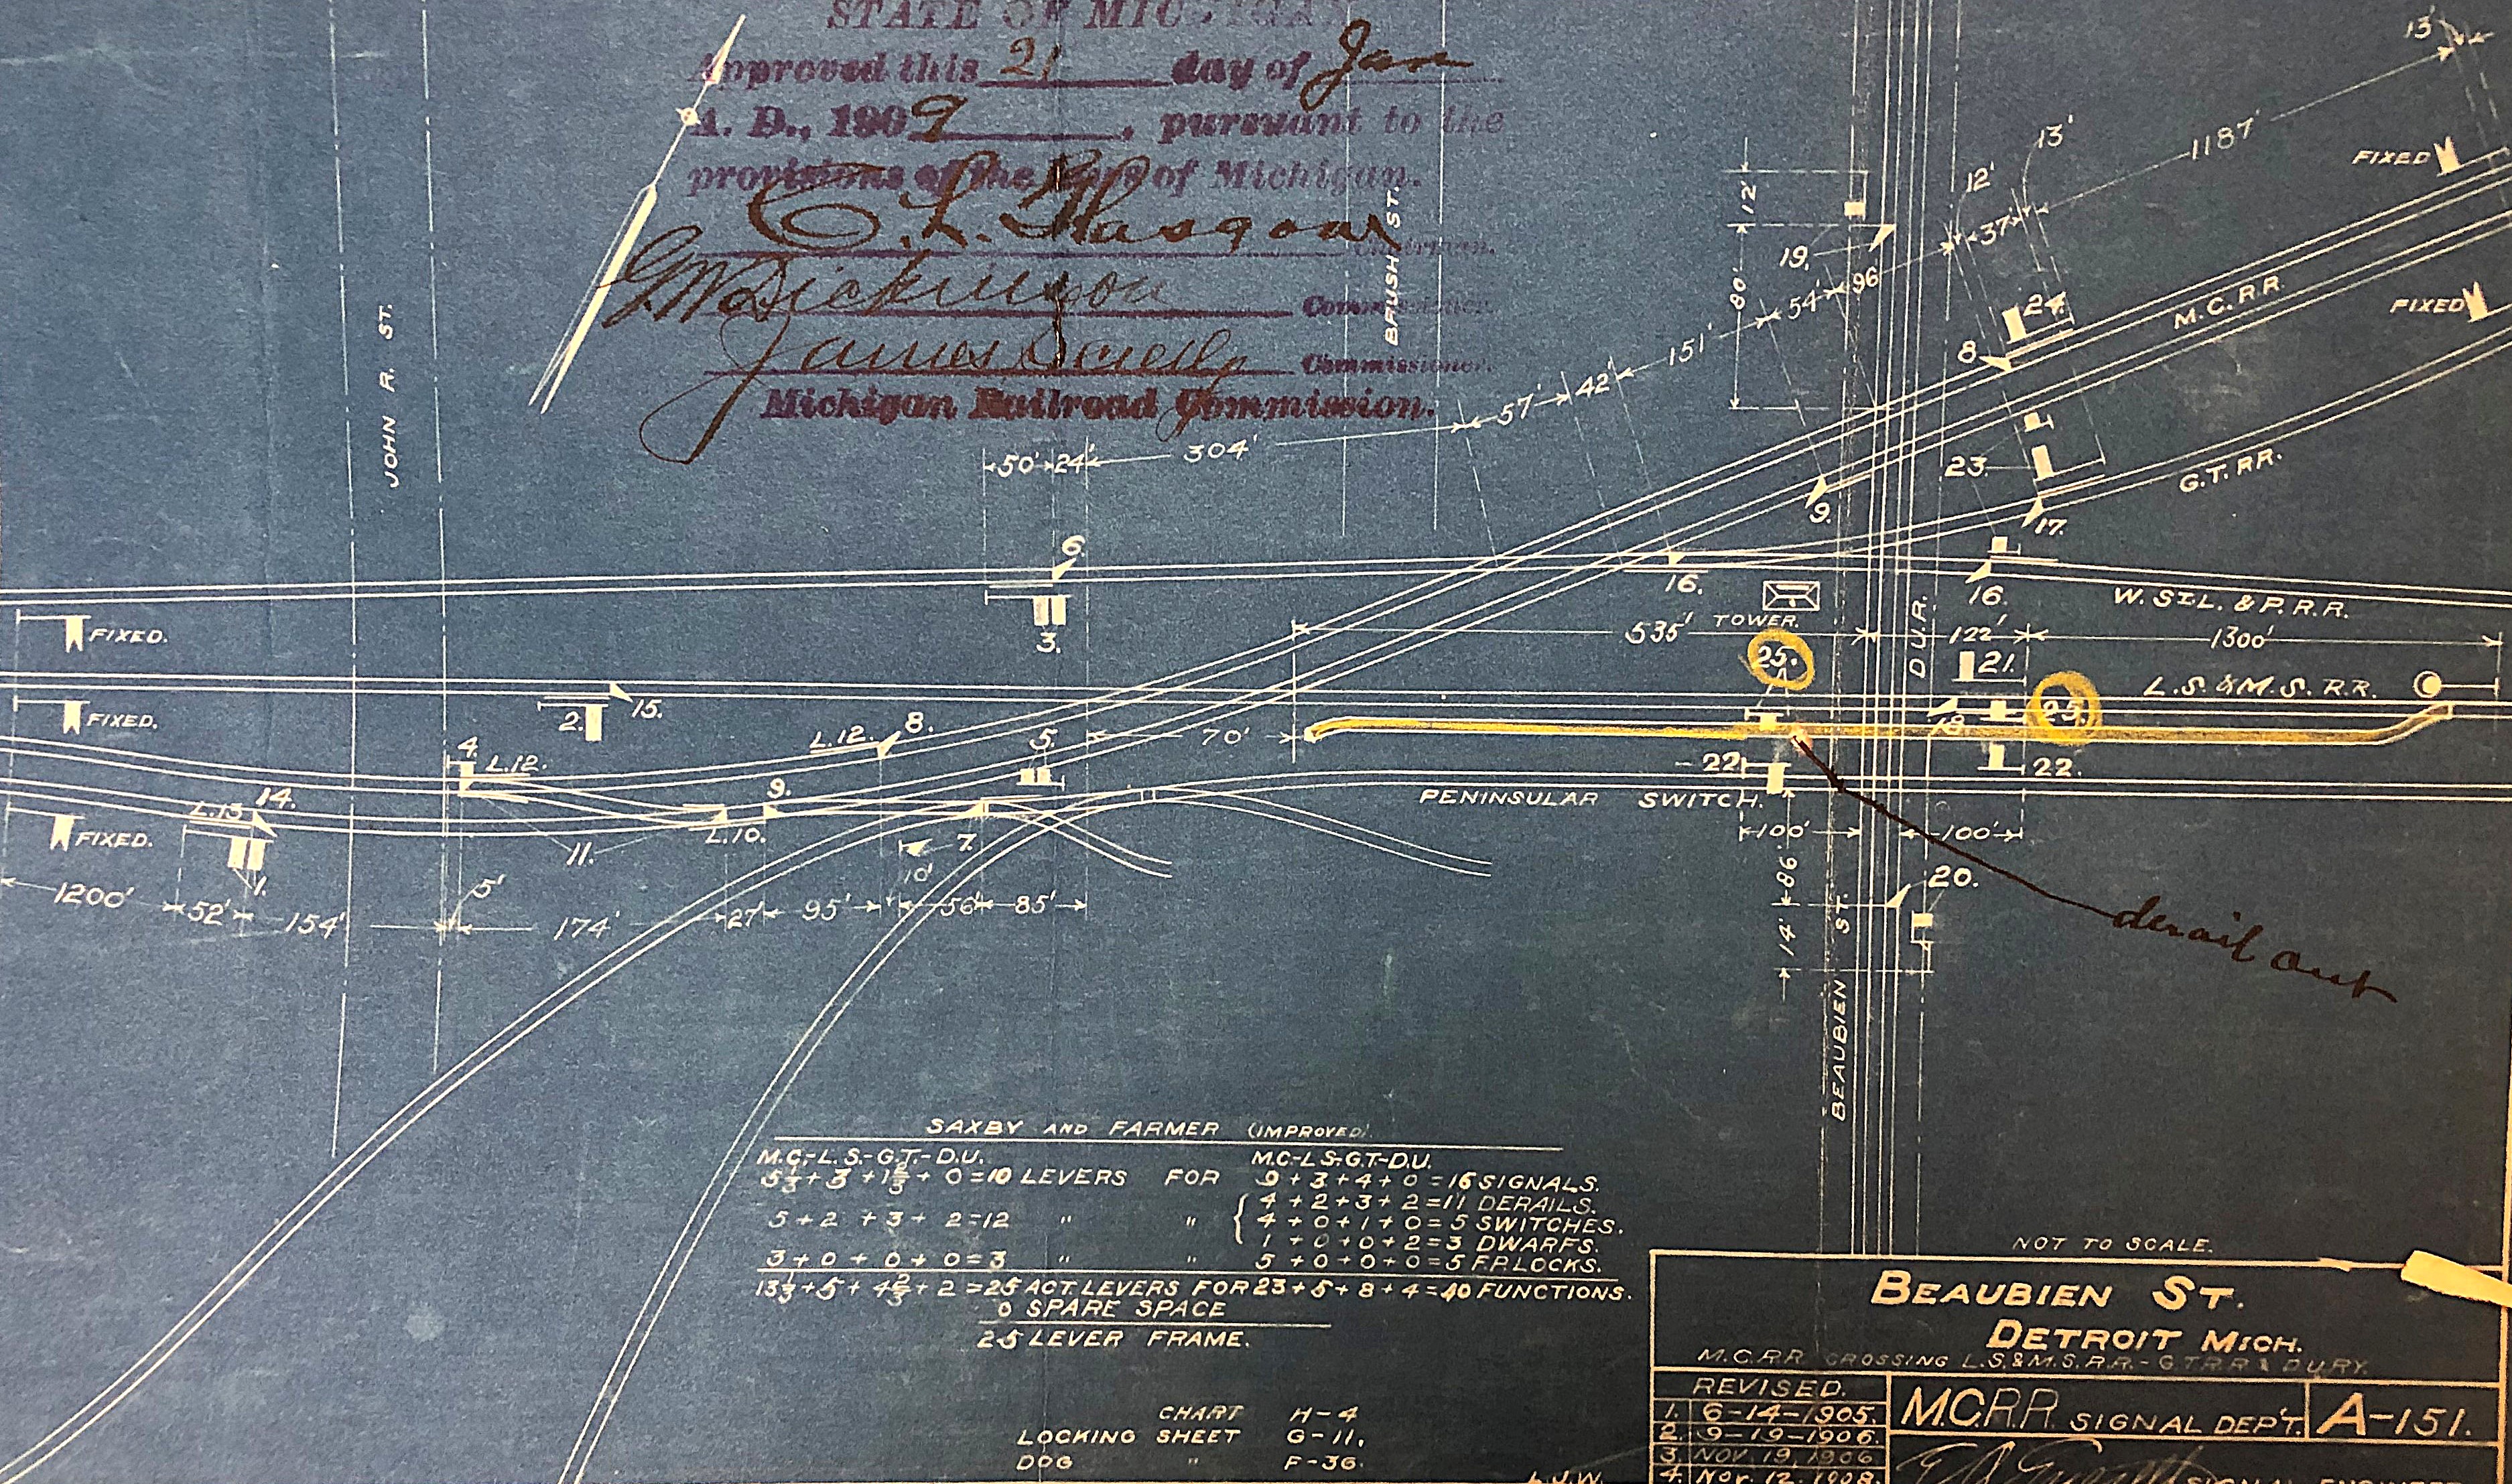 STATE OF MICHIGAN
Approved this 21 day of Jan
A. D., 1909, pursuant to the
provisions of the laws of Michigan.
C. L. Glasgow
Chairman.
G W Dickinson
Commissioner.
James Scully
Commissioner.
Michigan Railroad Commission.
JOHN R. ST.
BRUSH ST.
13'
1187'
13'
12'
37'
FIXED
12'
80'
19.
96
54'
151'
42'
57'
304'
50' 24'
24.
8.
M.C.R.R.
FIXED
23.
9.
G.T. RR.
17.
6.
3.
16.
16.
W. ST L. & P. R. R.
TOWER.
535'
122'
1300'
D.U.R.
FIXED.
25.
21.
25.
L.S. & M.S. R.R.
18
FIXED.
2.
15.
L.12.
8.
5.
70'
4.
L.12.
22
22.
PENINSULAR SWITCH.
100'
100'
L.13
14.
9.
L.10.
11.
7.
FIXED.
1.
10'
86'
20.
1200'
52'
154'
5'
174'
27'
95'
56'
85'
14'
BEAUBIEN ST.
derail out
SAXBY AND FARMER (IMPROVED).
M.C.-L.S.-G.T.-D.U. M.C-L.S-G.T-D.U.
5 1/3 + 3 + 1 2/3 + 0 = 10 LEVERS FOR 9 + 3 + 4 + 0 = 16 SIGNALS.
4 + 2 + 3 + 2 = 11 DERAILS.
5 + 2 + 3 + 2 = 12 " " { 4 + 0 + 1 + 0 = 5 SWITCHES.
1 + 0 + 0 + 2 = 3 DWARFS.
3 + 0 + 0 + 0 = 3 " " 5 + 0 + 0 + 0 = 5 F.P. LOCKS.
13 1/3 + 5 + 4 2/3 + 2 = 25 ACT. LEVERS FOR 23 + 5 + 8 + 4 = 40 FUNCTIONS.
0 SPARE SPACE
25 LEVER FRAME.
CHART H-4
LOCKING SHEET G-11,
DOG " F-36.
L.J.W.
NOT TO SCALE.
BEAUBIEN ST.
DETROIT MICH.
M.C.R.R. CROSSING L.S.&M.S.R.R.- G.T.R.R & D.U.RY.
REVISED.
1. 6-14-1905.
2. 9-19-1906.
3. NOV. 19, 1906
4. NOV. 12, 1908.
M.C.R.R. SIGNAL DEP'T. A-151.